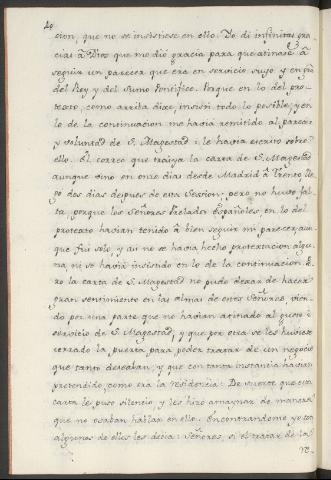 40
cion, que no se insistiese en ello. Yo di infinitas gra-
cias â Dios que me dió gracia para que atinase â
seguir un parecer que era en servicio suyo y en pro
del Rey y del Sumo Pontifice. Porque en lo del pro-
texto, como arriba dixe insistí todo lo posible, y en
lo de la continuacion me havia remitido al parecer
y voluntad de S. Magestad i le havia escrito sobre
ello. El correo que traiya la carta de S. Magestad
aunque vino en once dias desde Madrid â Trento lle-
gó dos dias despues de esta Session; pero no huvo fal-
ta porque los Señores Prelados Españoles, en lo del
protexto havian tenido â bien seguir mi parecer aun-
que fui solo, y así no se havia hecho protextacion algu-
na, ni se havia insistido en lo de la continuacion. Pe-
ro la carta de S. Magestad no pudo dexar de hacer
gran sentimiento en las almas de estos Señores, vien-
do por una parte que no havian atinado al gusto i
servicio de S. Magestad, y que por otra se les huviese
cerrado la puerta para poder tratar de un negocio
que tanto deseaban, y que con tanta instancia havian
pretendido, como era la residencia: De suerte que esta
carta le puso silencio, y les hizo amaynar de manera
que no osaban hablar en ello. Encontrandome yo con
algunos de ellos les decia: Señores, si el tratar de la
re-